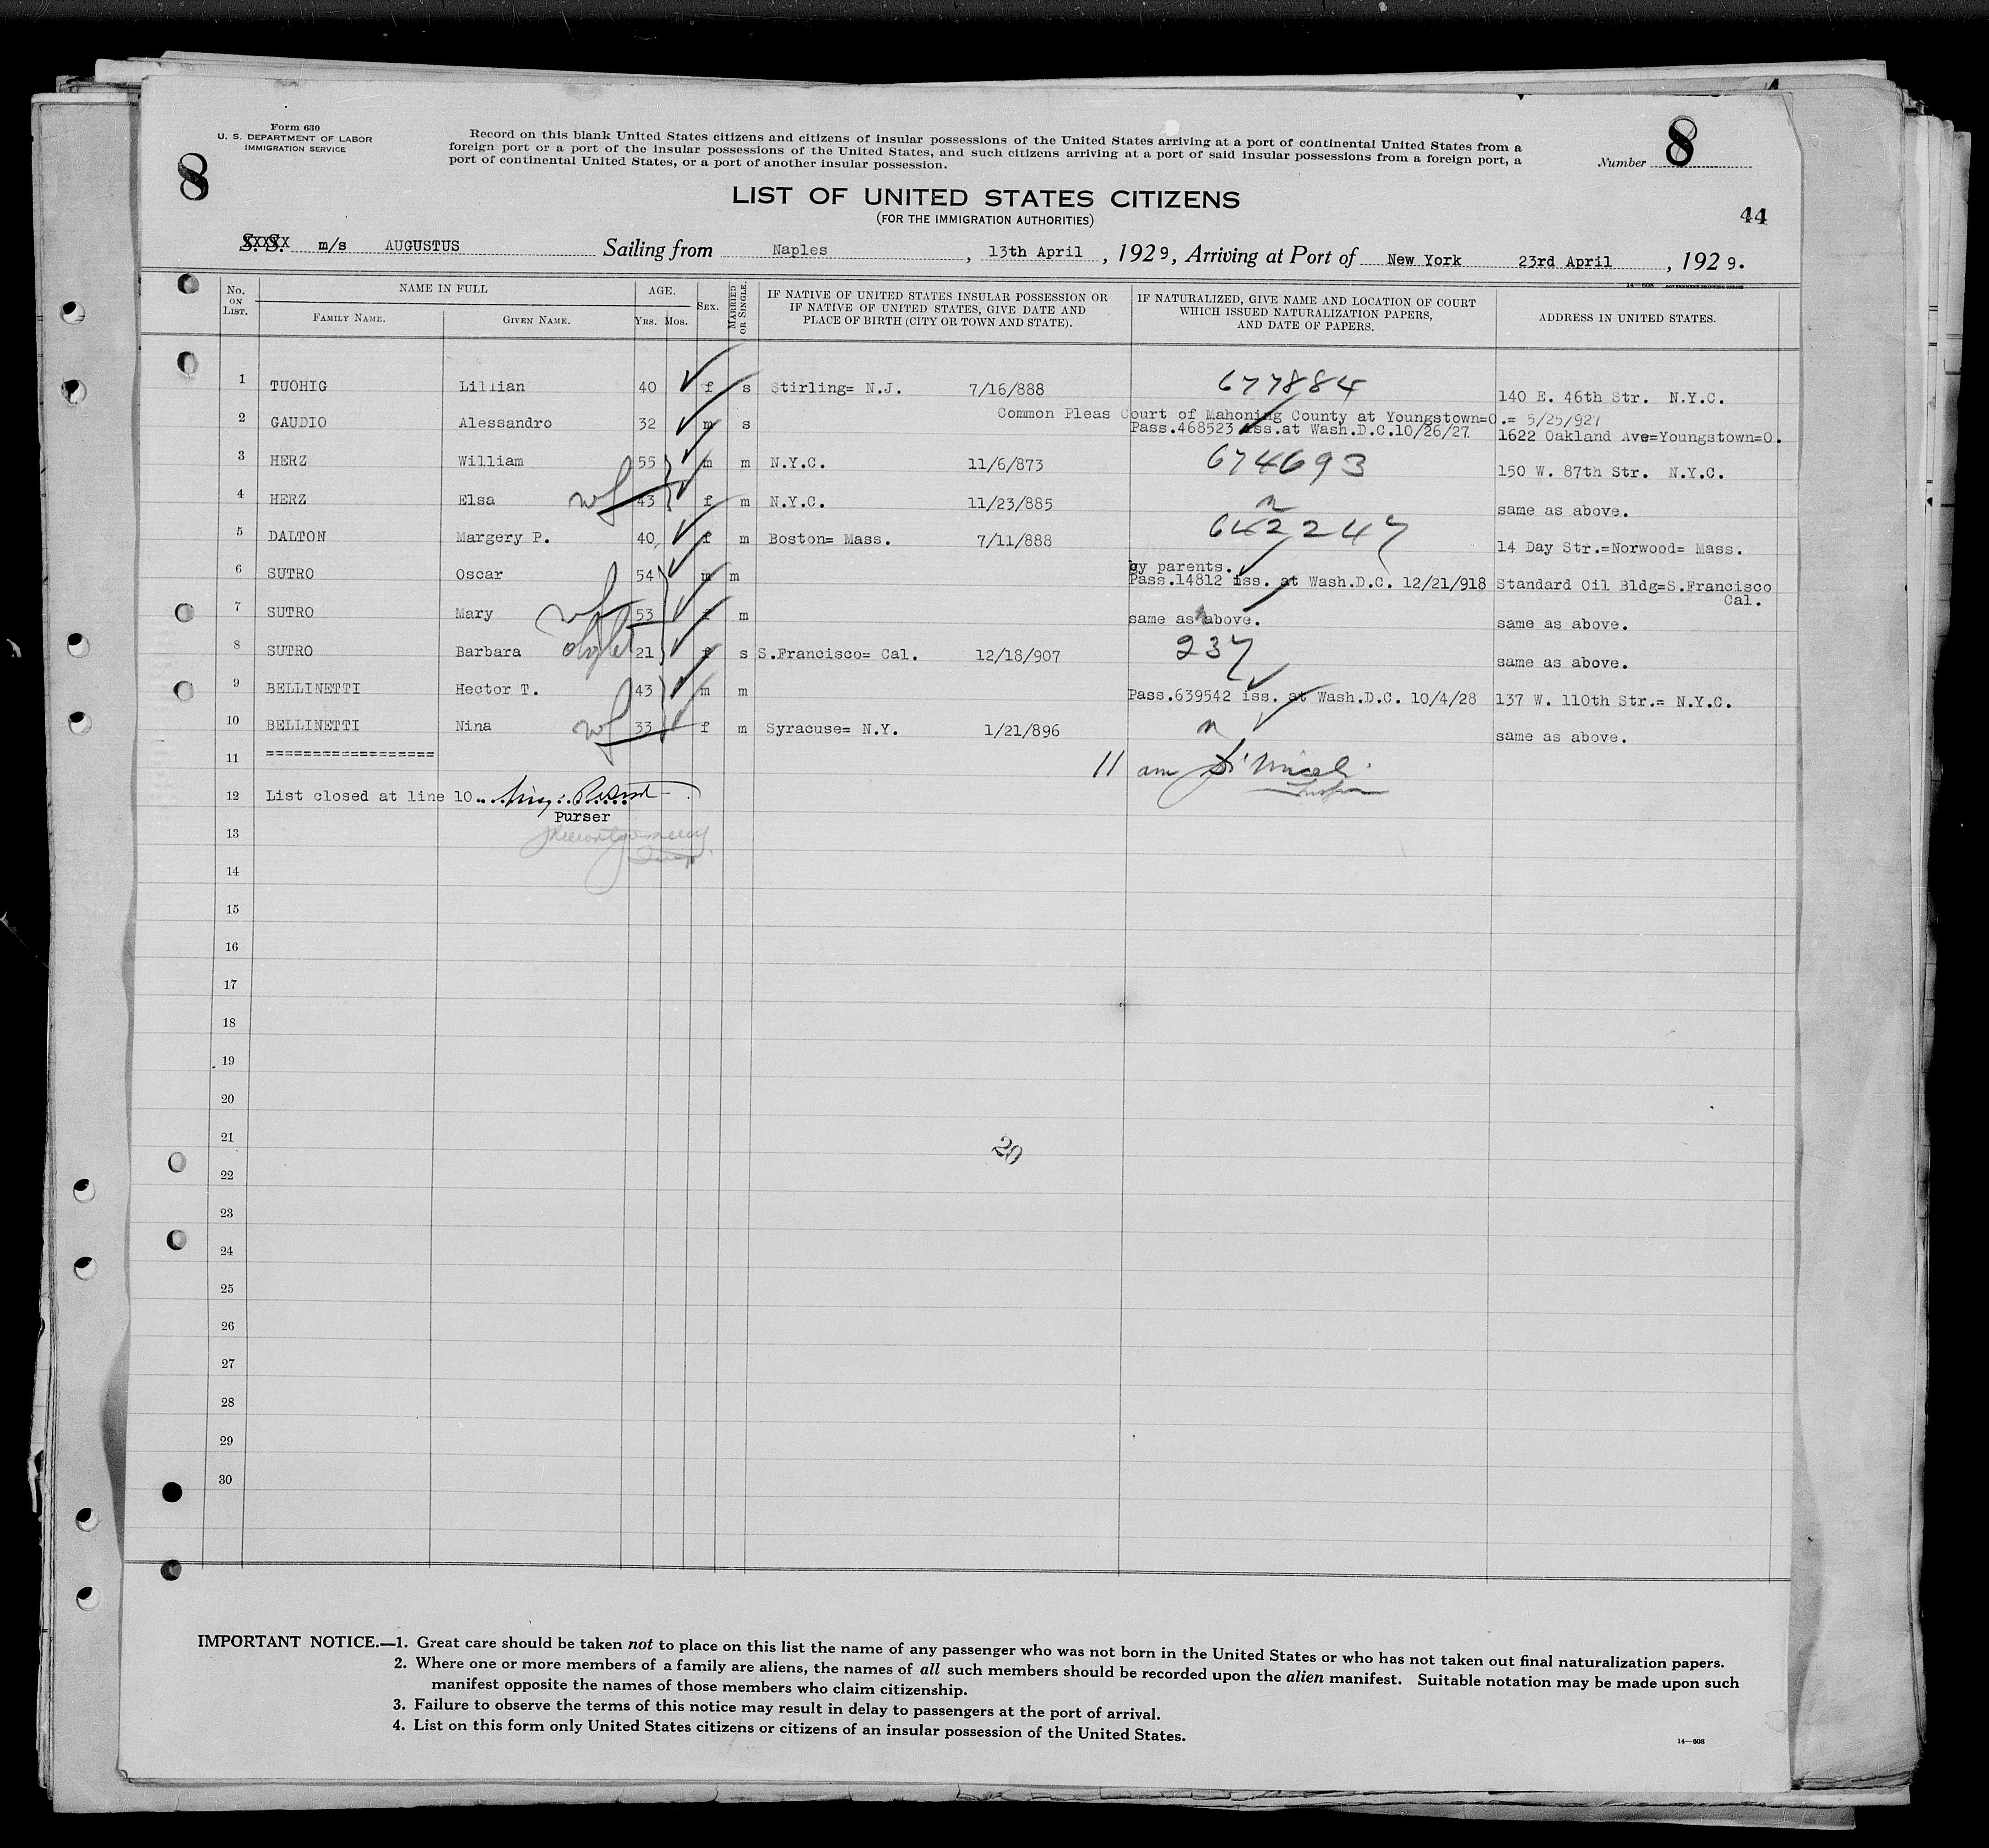 Form 630
U. S. DEPARTMENT OF LABOR
IMMIGRATION SERVICE
8
Record on this blank United States citizens and citizens of insular possessions of the United States arriving at a port of continental United States from a
foreign port or a port of the insular possessions of the United States, and such citizens arriving at a port of said insular possessions from a foreign port, a
port of continental United States, or a port of another insular possession.
Number 8
LIST OF UNITED STATES CITIZENS
(FOR THE IMMIGRATION AUTHORITIES)
44
S. S. m/s AUGUSTUS Sailing from Naples, 13th April, 1929, Arriving at Port of New York 23rd April, 1929.
14—608 GOVERNMENT PRINTING OFFICE
No. ON LIST. NAME IN FULL FAMILY NAME. GIVEN NAME. AGE. YRS. MOS. SEX. MARRIED OR SINGLE. IF NATIVE OF UNITED STATES INSULAR POSSESSION OR IF NATIVE OF UNITED STATES, GIVE DATE AND PLACE OF BIRTH (CITY OR TOWN AND STATE). IF NATURALIZED, GIVE NAME AND LOCATION OF COURT WHICH ISSUED NATURALIZATION PAPERS, AND DATE OF PAPERS. ADDRESS IN UNITED STATES.
1 TUOHIG Lillian 40 f s Stirling= N.J. 7/16/888 677884 140 E. 46th Str. N.Y.C.
2 GAUDIO Alessandro 32 m s Common Pleas Court of Mahoning County at Youngstown=O.= 5/25/927
Pass.468523 iss.at Wash.D.C.10/26/27 1622 Oakland Ave=Youngstown=O.
3 HERZ William 55 m m N.Y.C. 11/6/873 674693 150 W. 87th Str. N.Y.C.
4 HERZ Elsa wf 43 f m N.Y.C. 11/23/885 n same as above.
5 DALTON Margery P. 40 f m Boston= Mass. 7/11/888 642247 14 Day Str.=Norwood= Mass.
6 SUTRO Oscar 54 m m by parents.
Pass.14812 iss. at Wash.D.C. 12/21/918 Standard Oil Bldg=S.Francisco
Cal.
7 SUTRO Mary wf 53 f m same as above. same as above.
8 SUTRO Barbara 21 f s S.Francisco= Cal. 12/18/907 237 same as above.
9 BELLINETTI Hector T. 43 m m Pass.639542 iss. at Wash.D.C. 10/4/28 137 W. 110th Str.= N.Y.C.
10 BELLINETTI Nina wf 33 f m Syracuse= N.Y. 1/21/896 n same as above.
11 ================== 11 am
12 List closed at line 10
Purser
13
14
15
16
17
18
19
20
21
20
22
23
24
25
26
27
28
29
30
IMPORTANT NOTICE.—1. Great care should be taken not to place on this list the name of any passenger who was not born in the United States or who has not taken out final naturalization papers.
2. Where one or more members of a family are aliens, the names of all such members should be recorded upon the alien manifest. Suitable notation may be made upon such
manifest opposite the names of those members who claim citizenship.
3. Failure to observe the terms of this notice may result in delay to passengers at the port of arrival.
4. List on this form only United States citizens or citizens of an insular possession of the United States.
14—608